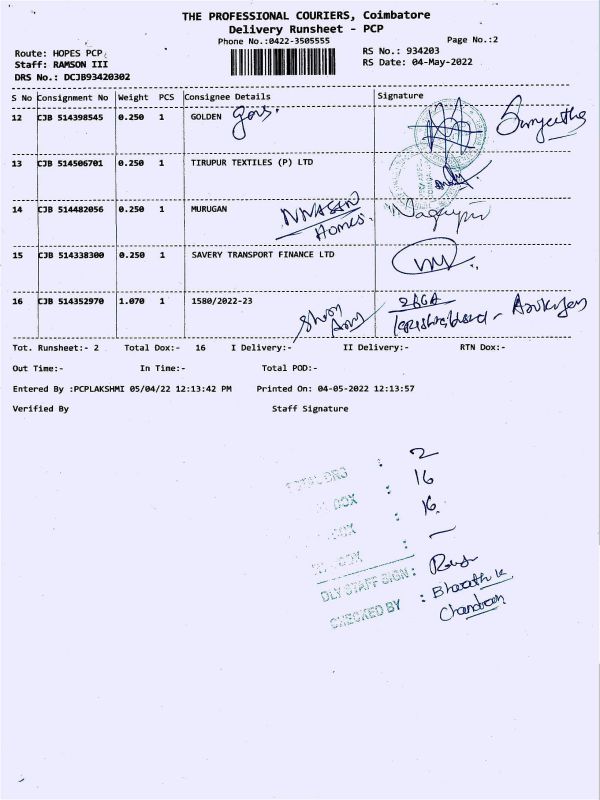 THE PROFESSIONAL COURIERS, Coimbatore
Delivery Runsheet - PCP
Phone No.:0422-3505555
Page No.:2
Route: HOPES PCP
RS No.: 934203
Staff: RAMSON III
RS Date: 04-May-2022
DRS No.: DCJB93420302
S No Consignment No Weight PCS Consignee Details Signature
12 CJB 514398545 0.250 1 GOLDEN
13 CJB 514506701 0.250 1 TIRUPUR TEXTILES (P) LTD
14 CJB 514482056 0.250 1 MURUGAN
Homes
15 CJB 514338300 0.250 1 SAVERY TRANSPORT FINANCE LTD
16 CJB 514352970 1.070 1 1580/2022-23
Tot. Runsheet:- 2 Total Dox:- 16 I Delivery:- II Delivery:- RTN Dox:-
Out Time:- In Time:- Total POD:-
Entered By :PCPLAKSHMI 05/04/22 12:13:42 PM Printed On: 04-05-2022 12:13:57
Verified By Staff Signature
TOTAL DRS : 2
DOX : 16
DOX : 16
: -
DLY STAFF SIGN :
CHECKED BY : Bharath k
Chandran